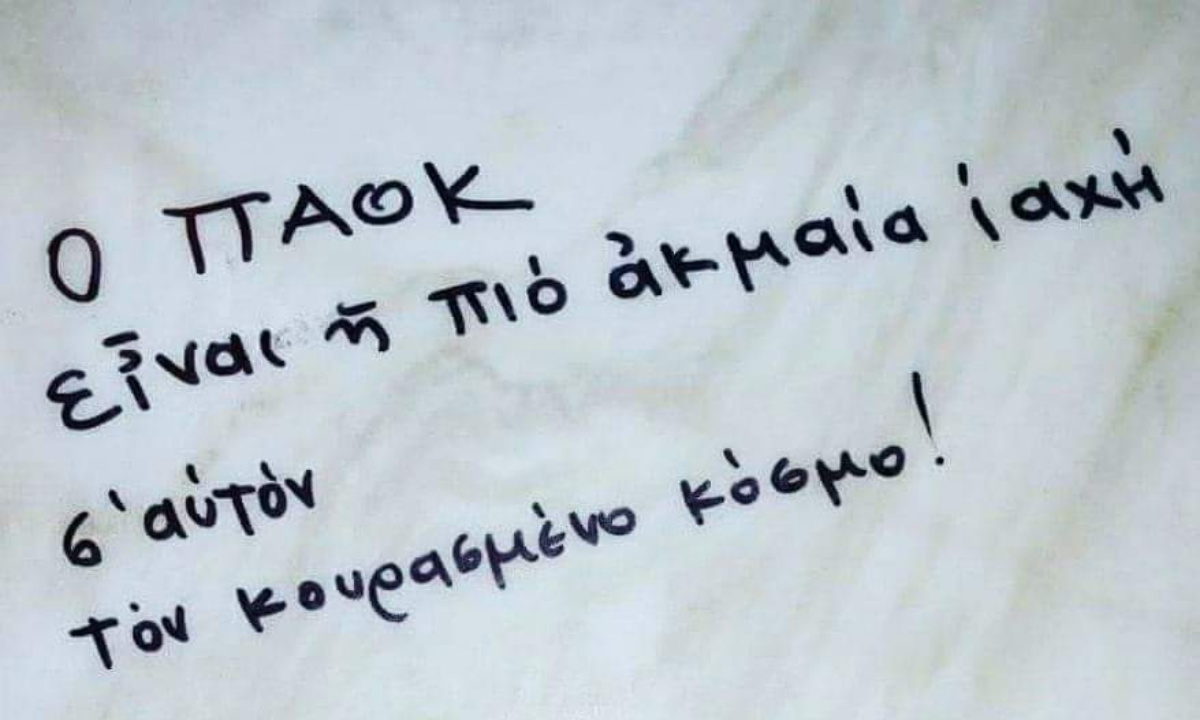 Ο ΠΑΟΚ
εἶναι ἡ πιό ἀκμαία ἰαχή
σ' αὐτὸν
τὸν κουρασμένο κόσμο!